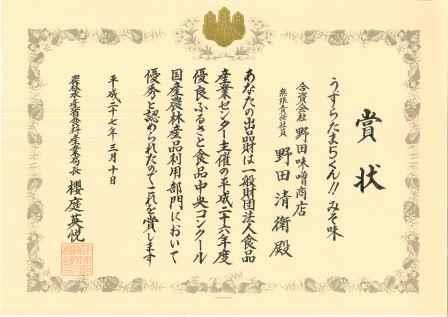 賞状
うずらたまらくん!! みそ味
合資会社 野田味噌商店
無限責任社員 野田清衛殿
あなたの出品財は一般財団法人食品
産業センター主催の平成二十六年度
優良ふるさと食品中央コンクール
国産農林産品利用部門において
優秀と認められたのでこれを賞します
平成二十七年三月十日
農林水産省食料産業局長 櫻庭英悦